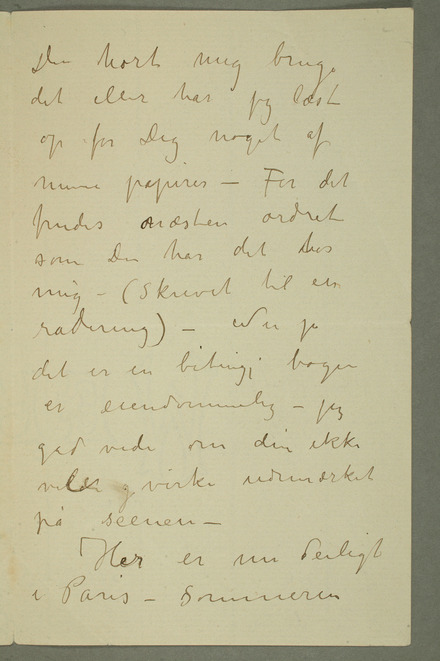 Du hørt mig bruge
det eller har jeg læst
op for Dig noget af
mine papirer – For det
findes næsten ordret
som Du har det hos
mig – (Skrevet til en
radering) – Nu ja
det er en biting; bogen
er eiendommelig – jeg
gad vide om din ikke
vilde og virke udmærket
på scenen –
Her er nu deiligt
i Paris – Sommeren